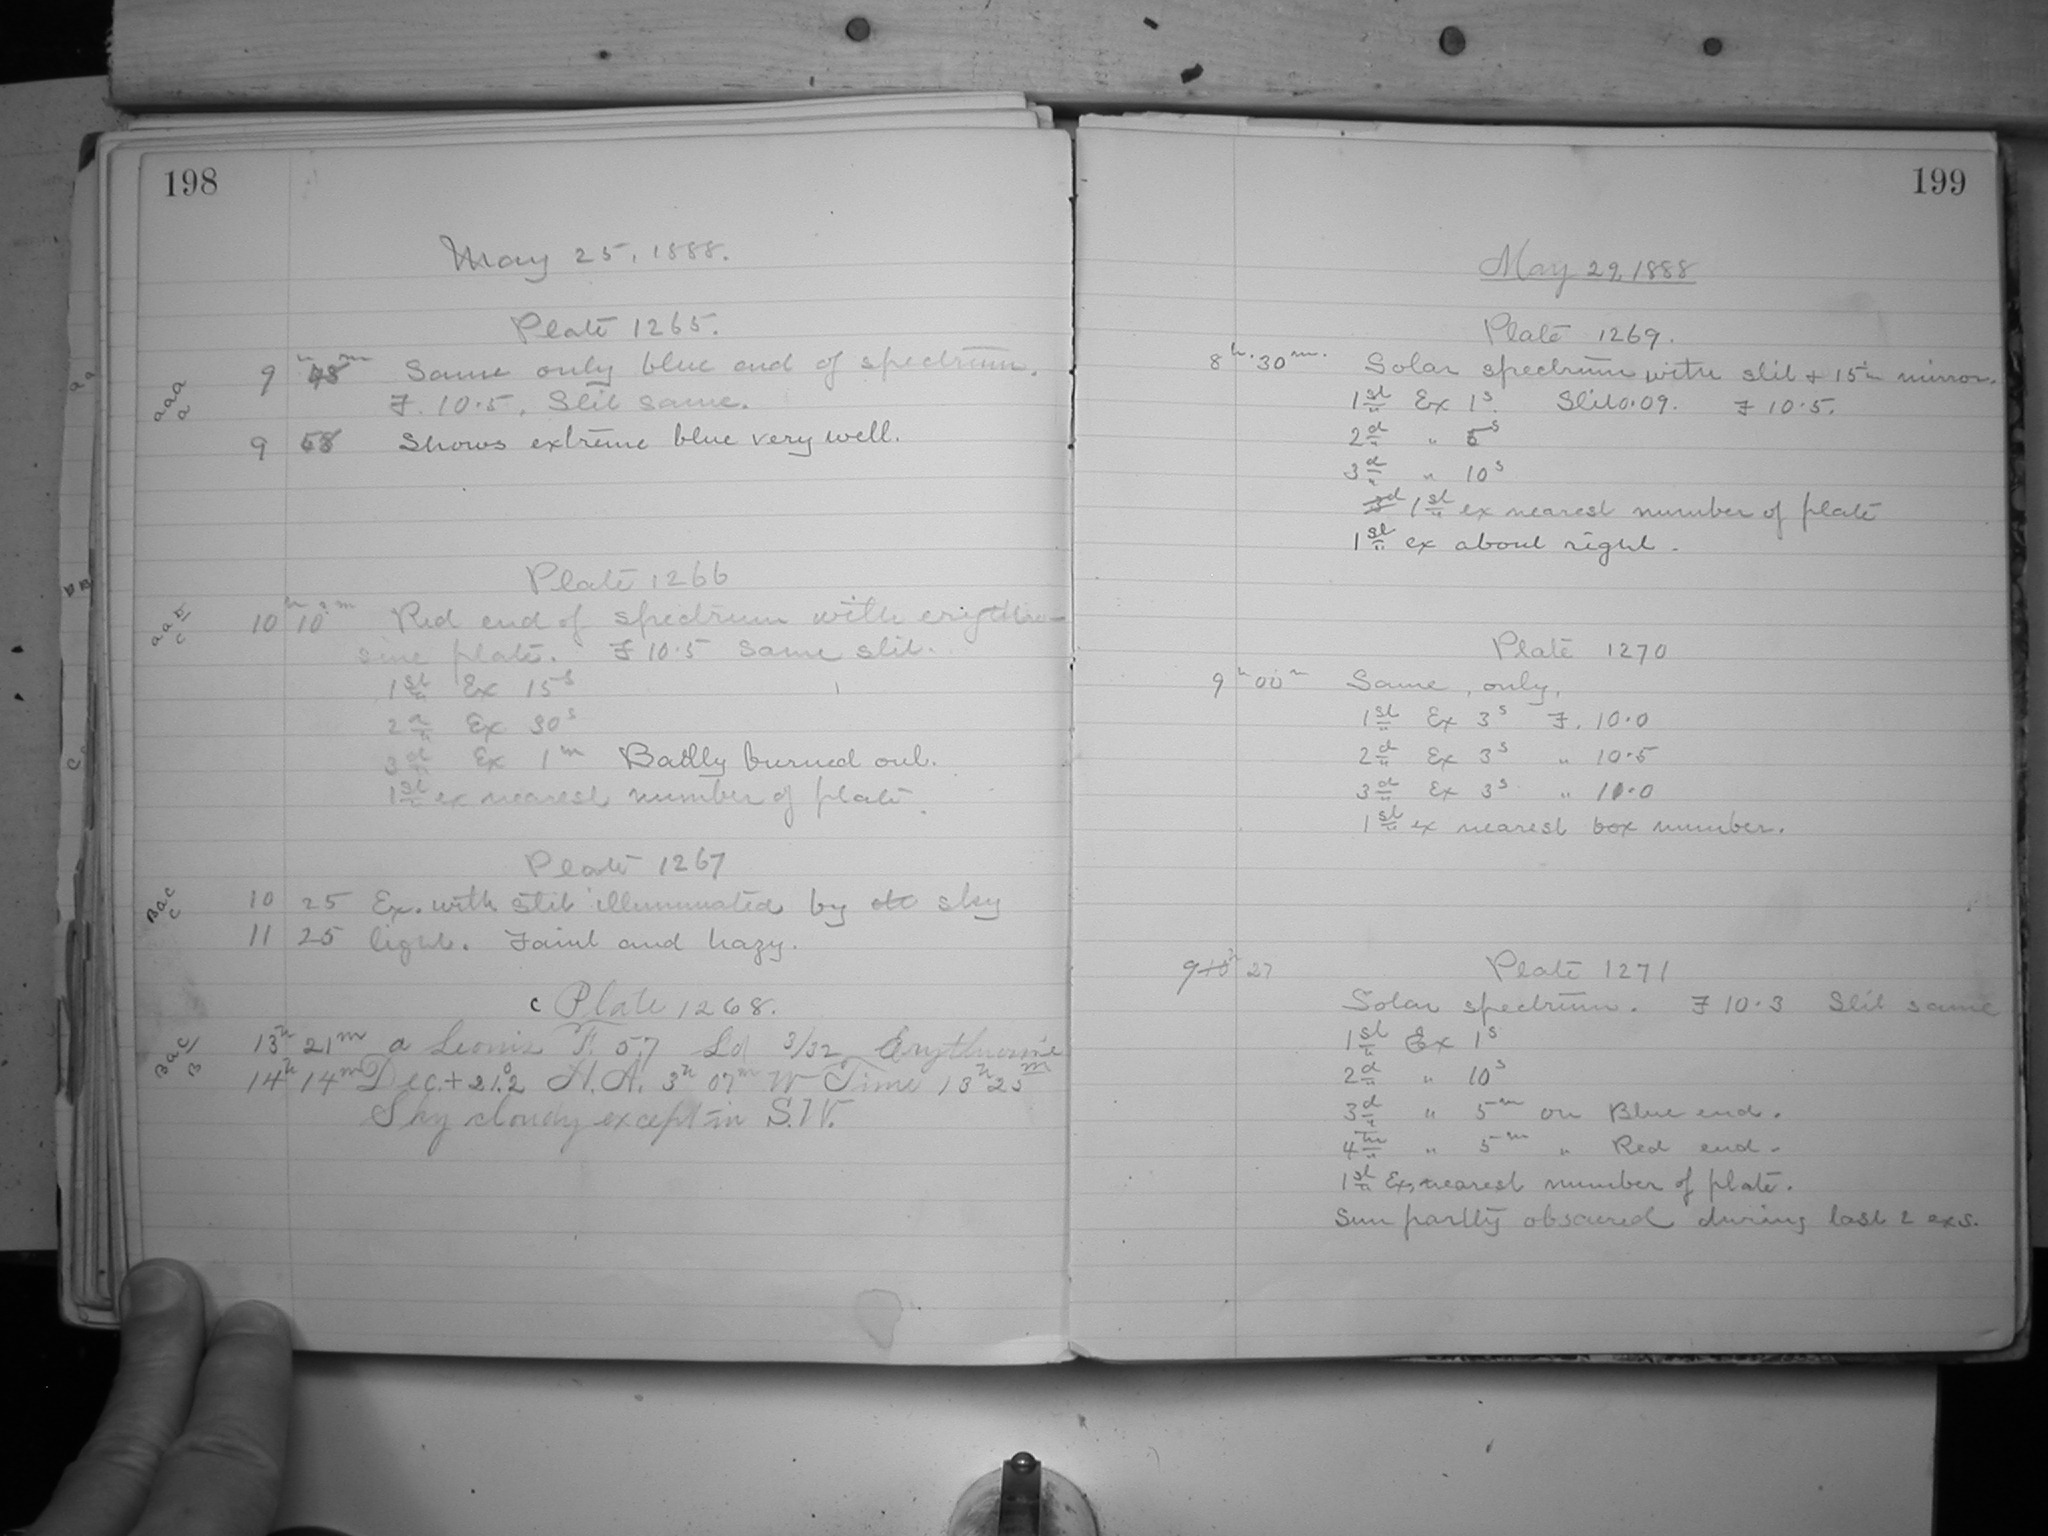 198
May 25, 1888.
Plate 1265.
9 h 48 m Same only blue end of spectrum.
F. 10.5. Slit same.
9 58 Shows extreme blue very well.
Plate 1266
10 h 10 m Red end of spectrum with erythro-
sine plate. F 10.5 Same slit.
1st Ex 15s
2d Ex 30s
3d Ex 1m Badly burned out.
1st ex nearest number of plate.
Plate 1267
10 25 Ex. with slit illuminated by sky
11 25 light. Faint and hazy.
c Plate 1268.
13h 21m a Leonis F. 5.7 Ld 3/32 Erythrosine
14h 14m Dec. + 21.2 H.A. 3h 07m W Time 13h 25m
Sky cloudy except in S.W.
199
May 29, 1888
Plate 1269.
8h. 30m. Solar spectrum with slit + 15in mirror.
1st Ex 1s. Slit 0.09. F 10.5.
2d " 5s
3d " 10s
3d 1st ex nearest number of plate
1st ex about right.
Plate 1270
9h 00m Same, only,
1st Ex 3s F. 10.0
2d Ex 3s " 10.5
3d Ex 3s " 11.0
1st ex nearest box number.
9 10h 27 Plate 1271
Solar spectrum. F 10.3 Slit same
1st Ex 1s
2d " 10s
3d " 5m on Blue end.
4th " 5m " Red end.
1st Ex, nearest number of plate.
Sun partly obscured during last 2 exs.